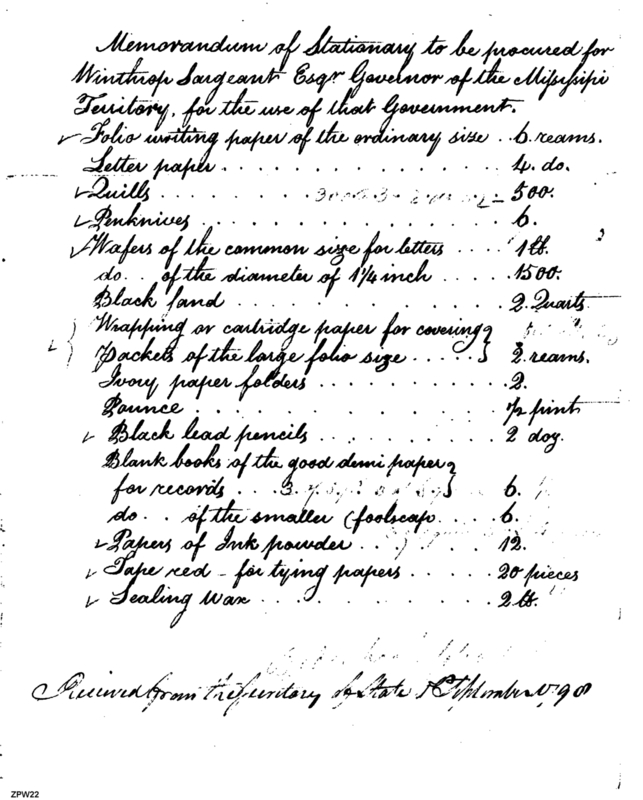 Memorandum of Stationary to be procured for
Winthrop Sargeant Esqr Governor of the Missisipi
Territory, for the use of that Government.
Folio writing paper of the ordinary size .. 6. reams.
Letter paper . . . . . . . . . . . . . . . 4. do.
Quills . . . . . . . . 500.
Penknives . . . . . . . . . . . . . . . 6.
Wafers of the common size for letters . . . . 1 lb.
do. . of the diameter of 1 1/4 inch . . . . . 1500.
Black sand . . . . . . . . . . . . . . . 2. Quarts
Wrapping or cartridge paper for covering }
Packets of the large folio size . . . . . } 2. reams.
Ivory paper folders . . . . . . . . . . 2.
Pounce . . . . . . . . . . . . . . . 1/2 pint
Black lead pencils . . . . . . . . . . 2 doz.
Blank books of the good demi paper }
for records . . . } 6.
do . . of the smaller (foolscap . . . . 6.
Papers of Ink powder . . . 12.
Tape red - for tying papers . . . . . 20 pieces
Sealing Wax . . . . . . . . . . . . 2 lb.
Received from the Secretary of State September 98
ZPW22